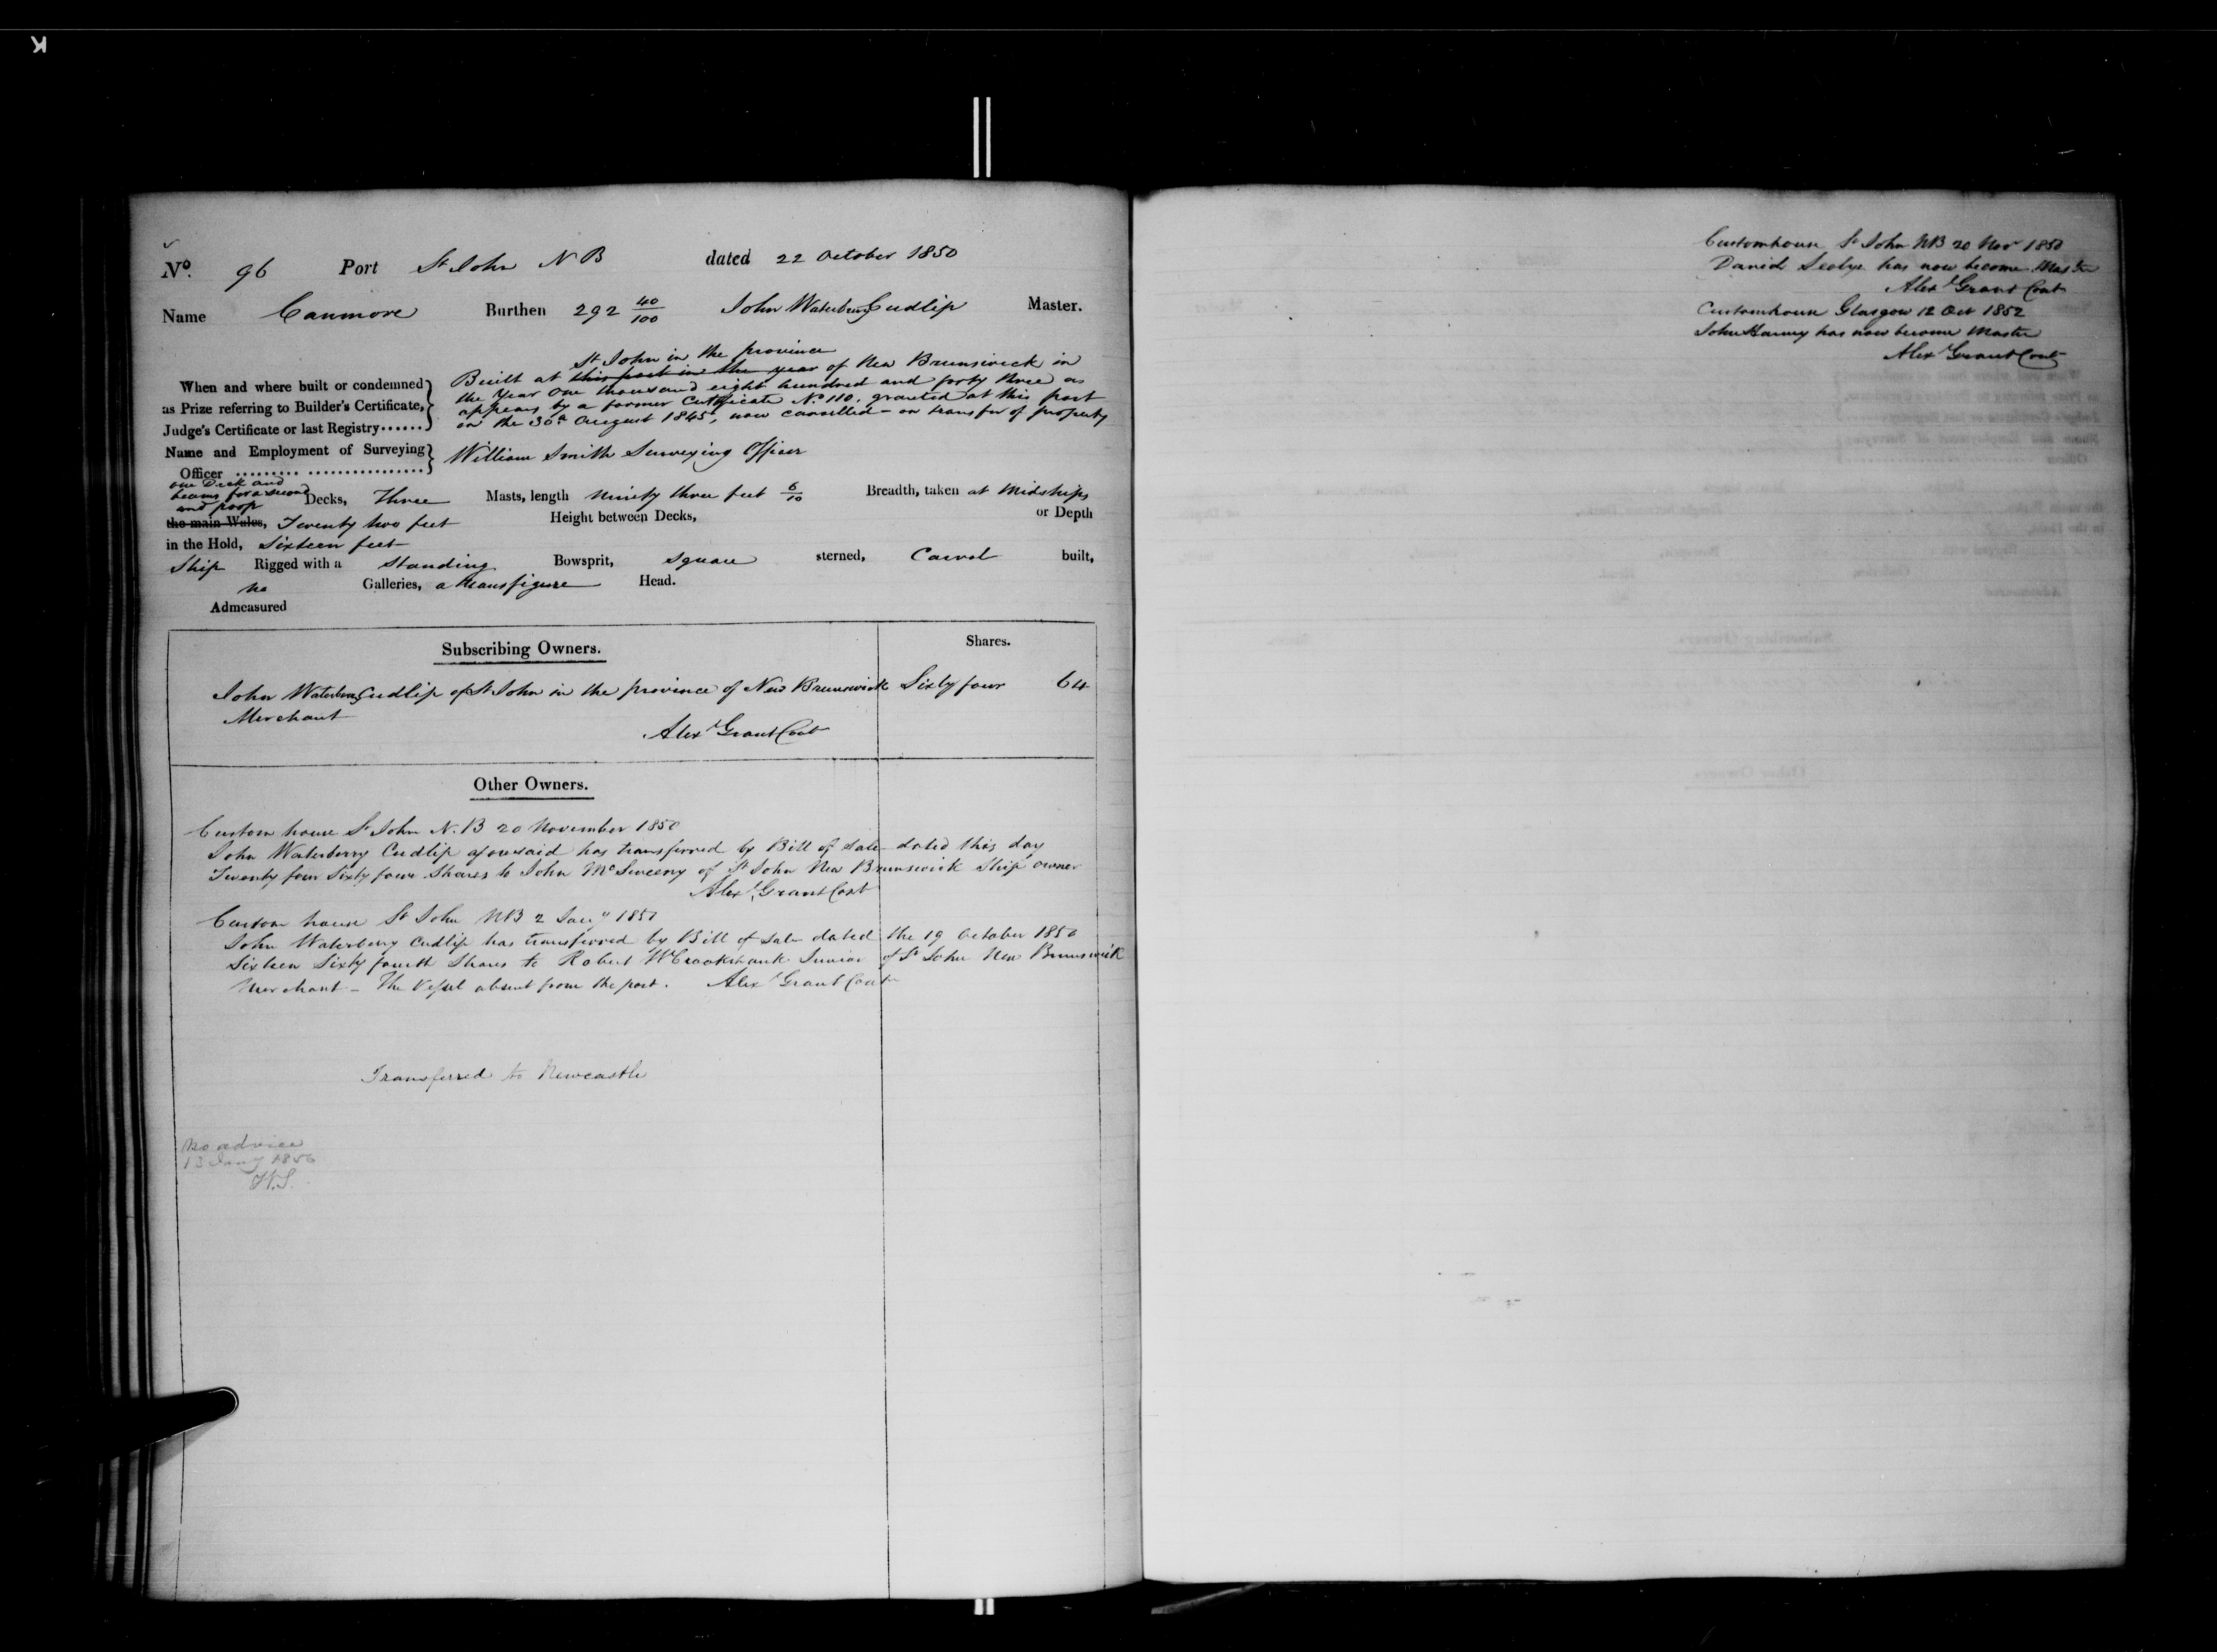 No. 96 Port St John N B dated 22 October 1850
Name Canmore Burthen 292 40/100 John Waterberry Cudlip Master.
St John in the province
When and where built or condemned as Prize referring to Builder's Certificate, Judge's Certificate or last Registry......
Built at this port in the year of New Brunswick in
the Year One thousand eight hundred and forty three as
appears by a former Certificate No. 110. granted at this port
on the 30th August 1845, now cancelled - on transfer of property
Name and Employment of Surveying Officer ......... ................. William Smith Surveying Officer
one Deck and
beams for a second
and poop
Decks, Three Masts, length ninety three feet 6/10 Breadth, taken at Midships
the main Wales, Twenty two feet Height between Decks, or Depth
in the Hold, Sixteen feet
Ship Rigged with a Standing Bowsprit, square sterned, Carvel built,
no Galleries, a mans figure Head.
Admeasured
Subscribing Owners. Shares.
John Waterberry Cudlip of St John in the province of New Brunswick Sixty four 64
Merchant
Alexr Grant Cont
Other Owners.
Custom house St John N.B 20 November 1850
John Waterberry Cudlip aforesaid has transferred by Bill of sale dated this day
Twenty four Sixty four Shares to John McSweeny of St John New Brunswick Ship owner
Alexr Grant Cont
Custom house St John NB 2 Jany 1851
John Waterberry Cudlip has transferred by Bill of Sale dated the 19 October 1850
Sixteen Sixty fourth Shares to Robert W Crookshank Junior of St John New Brunswick
Merchant - The Vessel absent from the port. Alexr Grant Contr
Transferred to Newcastle
No advice
13 Jany 1856
W.S.
Customhouse St John NB 20 Nov 1850
David has now become Master
Alexr Grant Cont
Customhouse Glasgow 12 Oct 1852
John has now become Master
Alexr Grant Cont